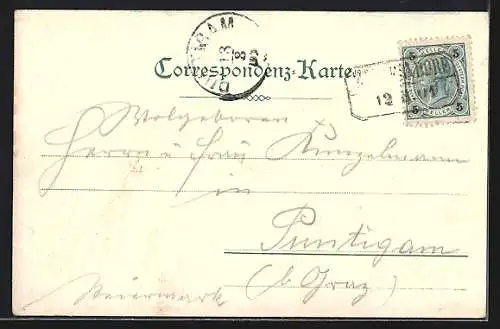 Correspondenz-Karte
5 5
HELLER
12
13
8
Wolgeboren
Herrn u frau Kunzelmann
in
Puntigam
(b. Graz)
Steiermark